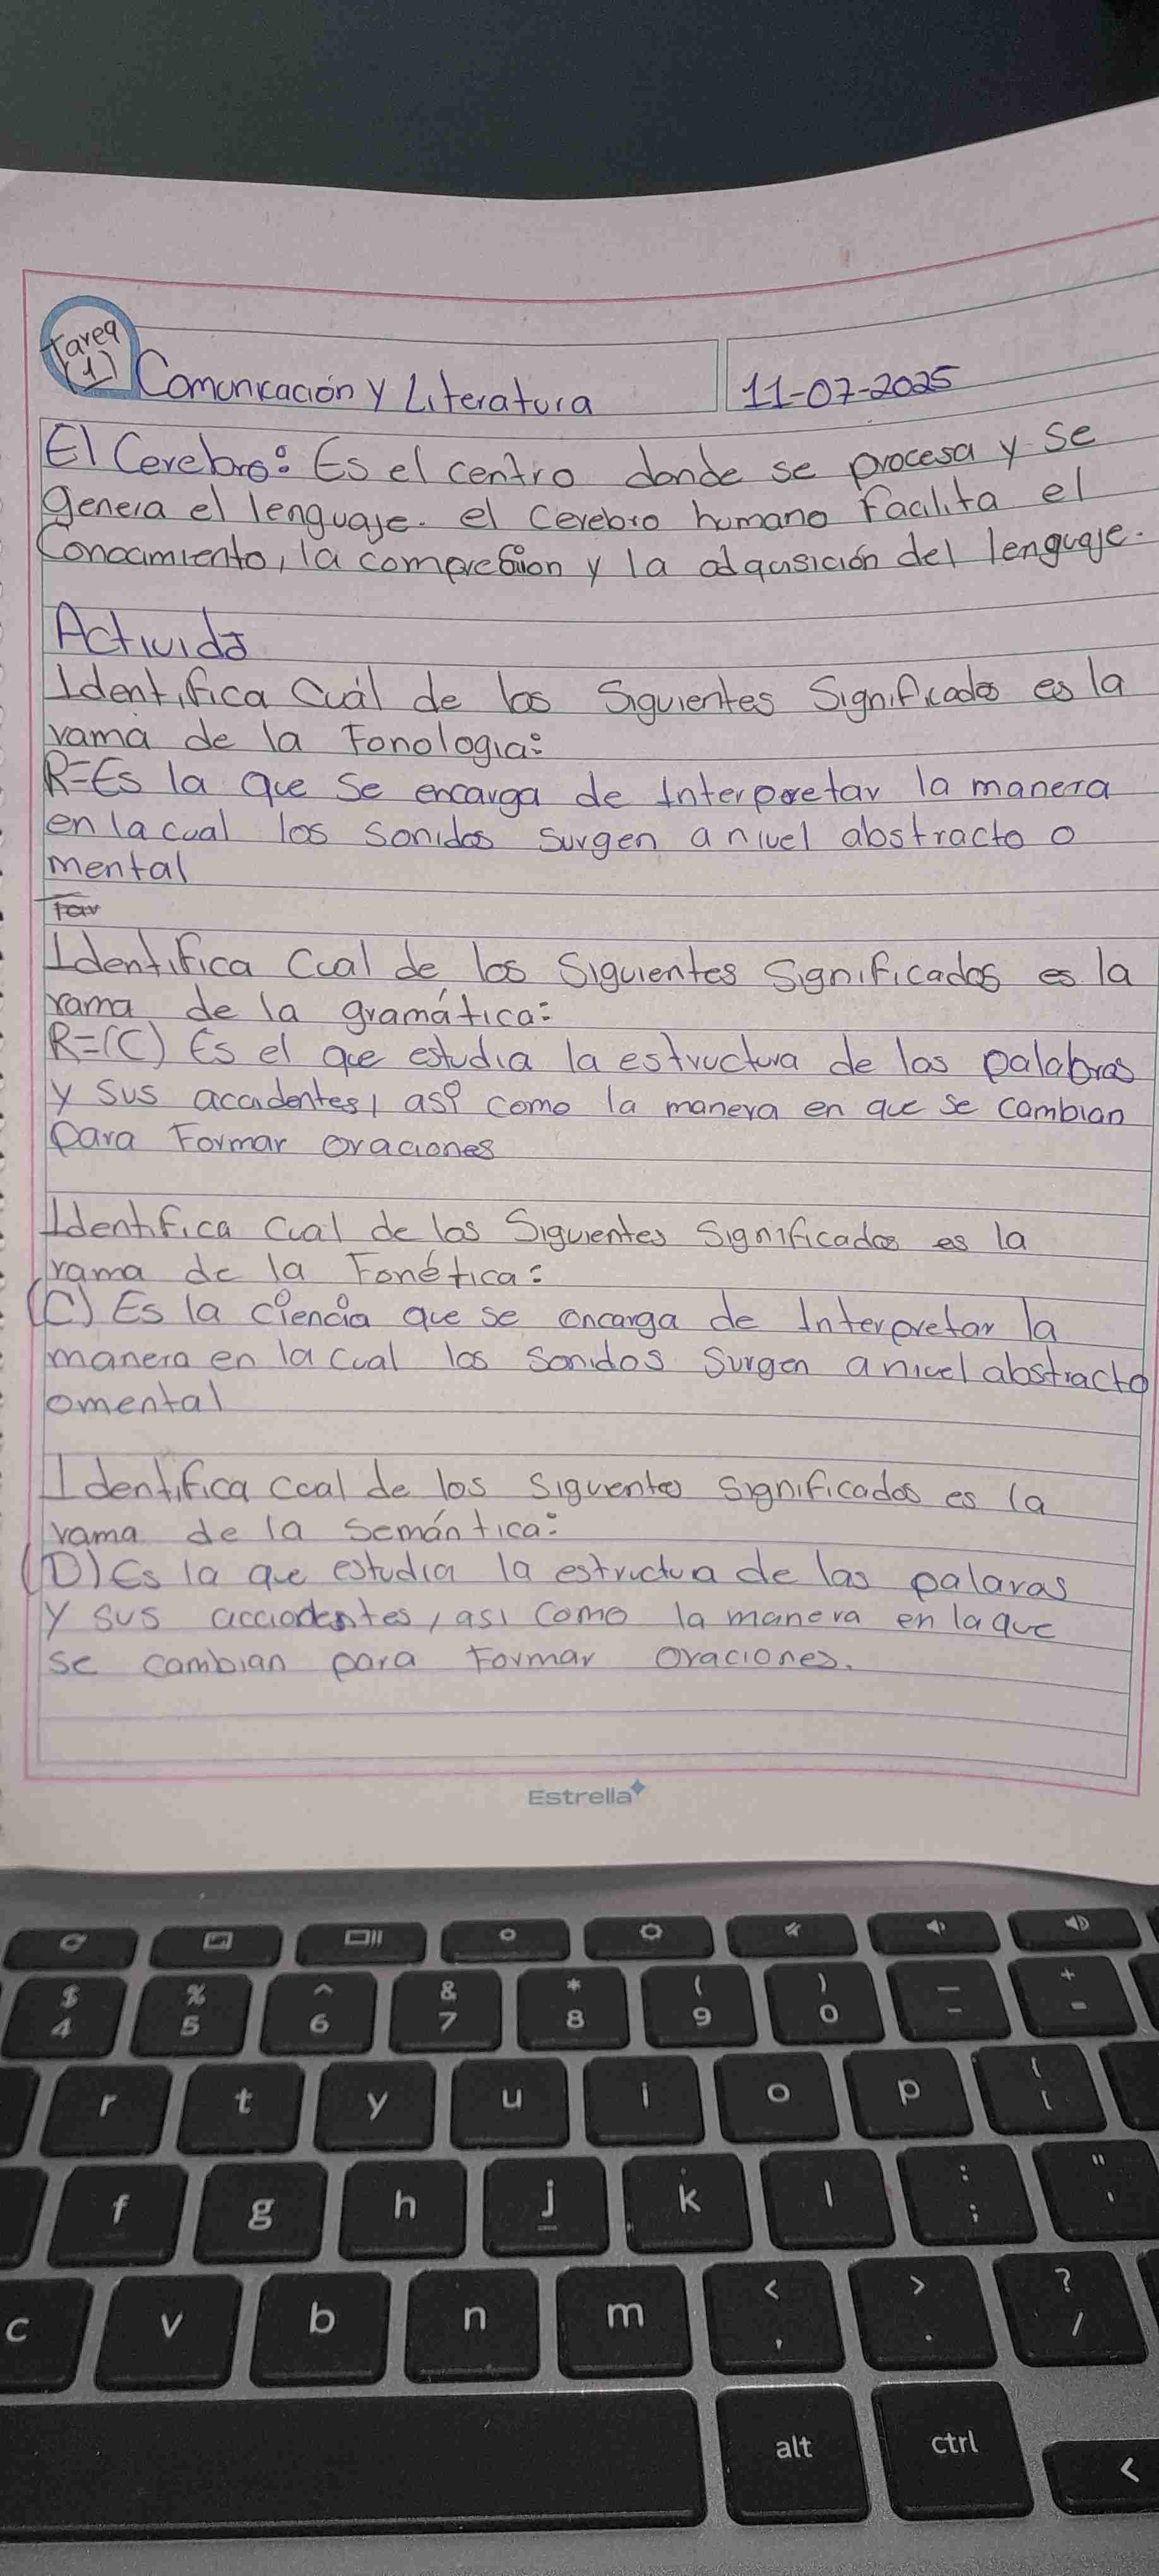 Tarea
(1)
Comunicación y Literatura
11-07-2025
El Cerebro: Es el centro donde se procesa y se
genera el lenguaje. el cerebro humano Facilita el
Conocimiento, la compresion y la adqusición del lenguaje.
Activida
Identifica Cuál de los Siguientes Significados es la
rama de la Fonologia:
R=Es la que se encarga de Interpretar la manera
en la cual los sonidos surgen a nivel abstracto o
mental
Identifica Cual de los Siguientes Significados es la
rama de la gramática:
R=(C) Es el que estudia la estructura de las palabras
y sus accidentes, así como la manera en que se cambian
para Formar oraciones
Identifica Cual de los Siguientes Significados es la
rama de la Fonética:
(C) Es la ciencia que se encarga de Interpretar la
manera en la cual los sonidos surgen a nivel abstracto
o mental
Identifica cual de los siguentes significados es la
rama de la semántica:
(D) Es la que estudia la estructua de las palaras
y sus acciodentes, asi como la manera en la que
se cambian para Formar oraciones.
Estrella
$ % ^ & * ( ) _ +
4 5 6 7 8 9 0 - =
r t y u i o p { [
f g h j k l : ; " '
c v b n m < , > . ? /
alt ctrl <